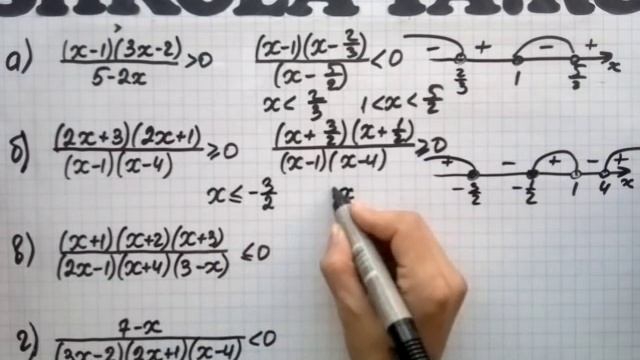 а) (x-1)(3x-2)/5-2x >0 (x-1)(x-2/3)/(x-5/2) <0 - + - + 2/3 1 5/2 x
x< 2/3 1<x< 5/2
б) (2x+3)(2x+1)/(x-1)(x-4) ≥0 (x+3/2)(x+1/2)/(x-1)(x-4) ≥0 + - + - + -3/2 -1/2 1 4 x
x≤-3/2 x
в) (x+1)(x+2)(x+3)/(2x-1)(x+4)(3-x) ≤0
г) 7-x/(3x-2)(2x+1)(x-4) <0